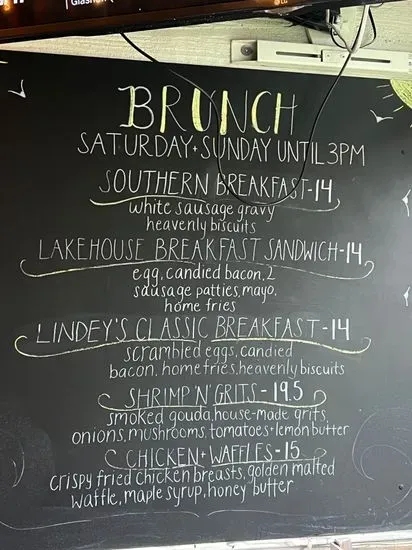 BRUNCH
SATURDAY + SUNDAY UNTIL 3PM
SOUTHERN BREAKFAST-14
white sausage gravy
heavenly biscuits
LAKEHOUSE BREAKFAST SANDWICH-14
egg, candied bacon, 2
sausage patties, mayo,
home fries
LINDEY'S CLASSIC BREAKFAST-14
scrambled eggs, candied
bacon, home fries, heavenly biscuits
SHRIMP 'N' GRITS - 19.5
smoked gouda, house-made grits,
onions, mushrooms, tomatoes + lemon butter
CHICKEN + WAFFLES - 15
crispy fried chicken breasts, golden malted
waffle, maple syrup, honey butter